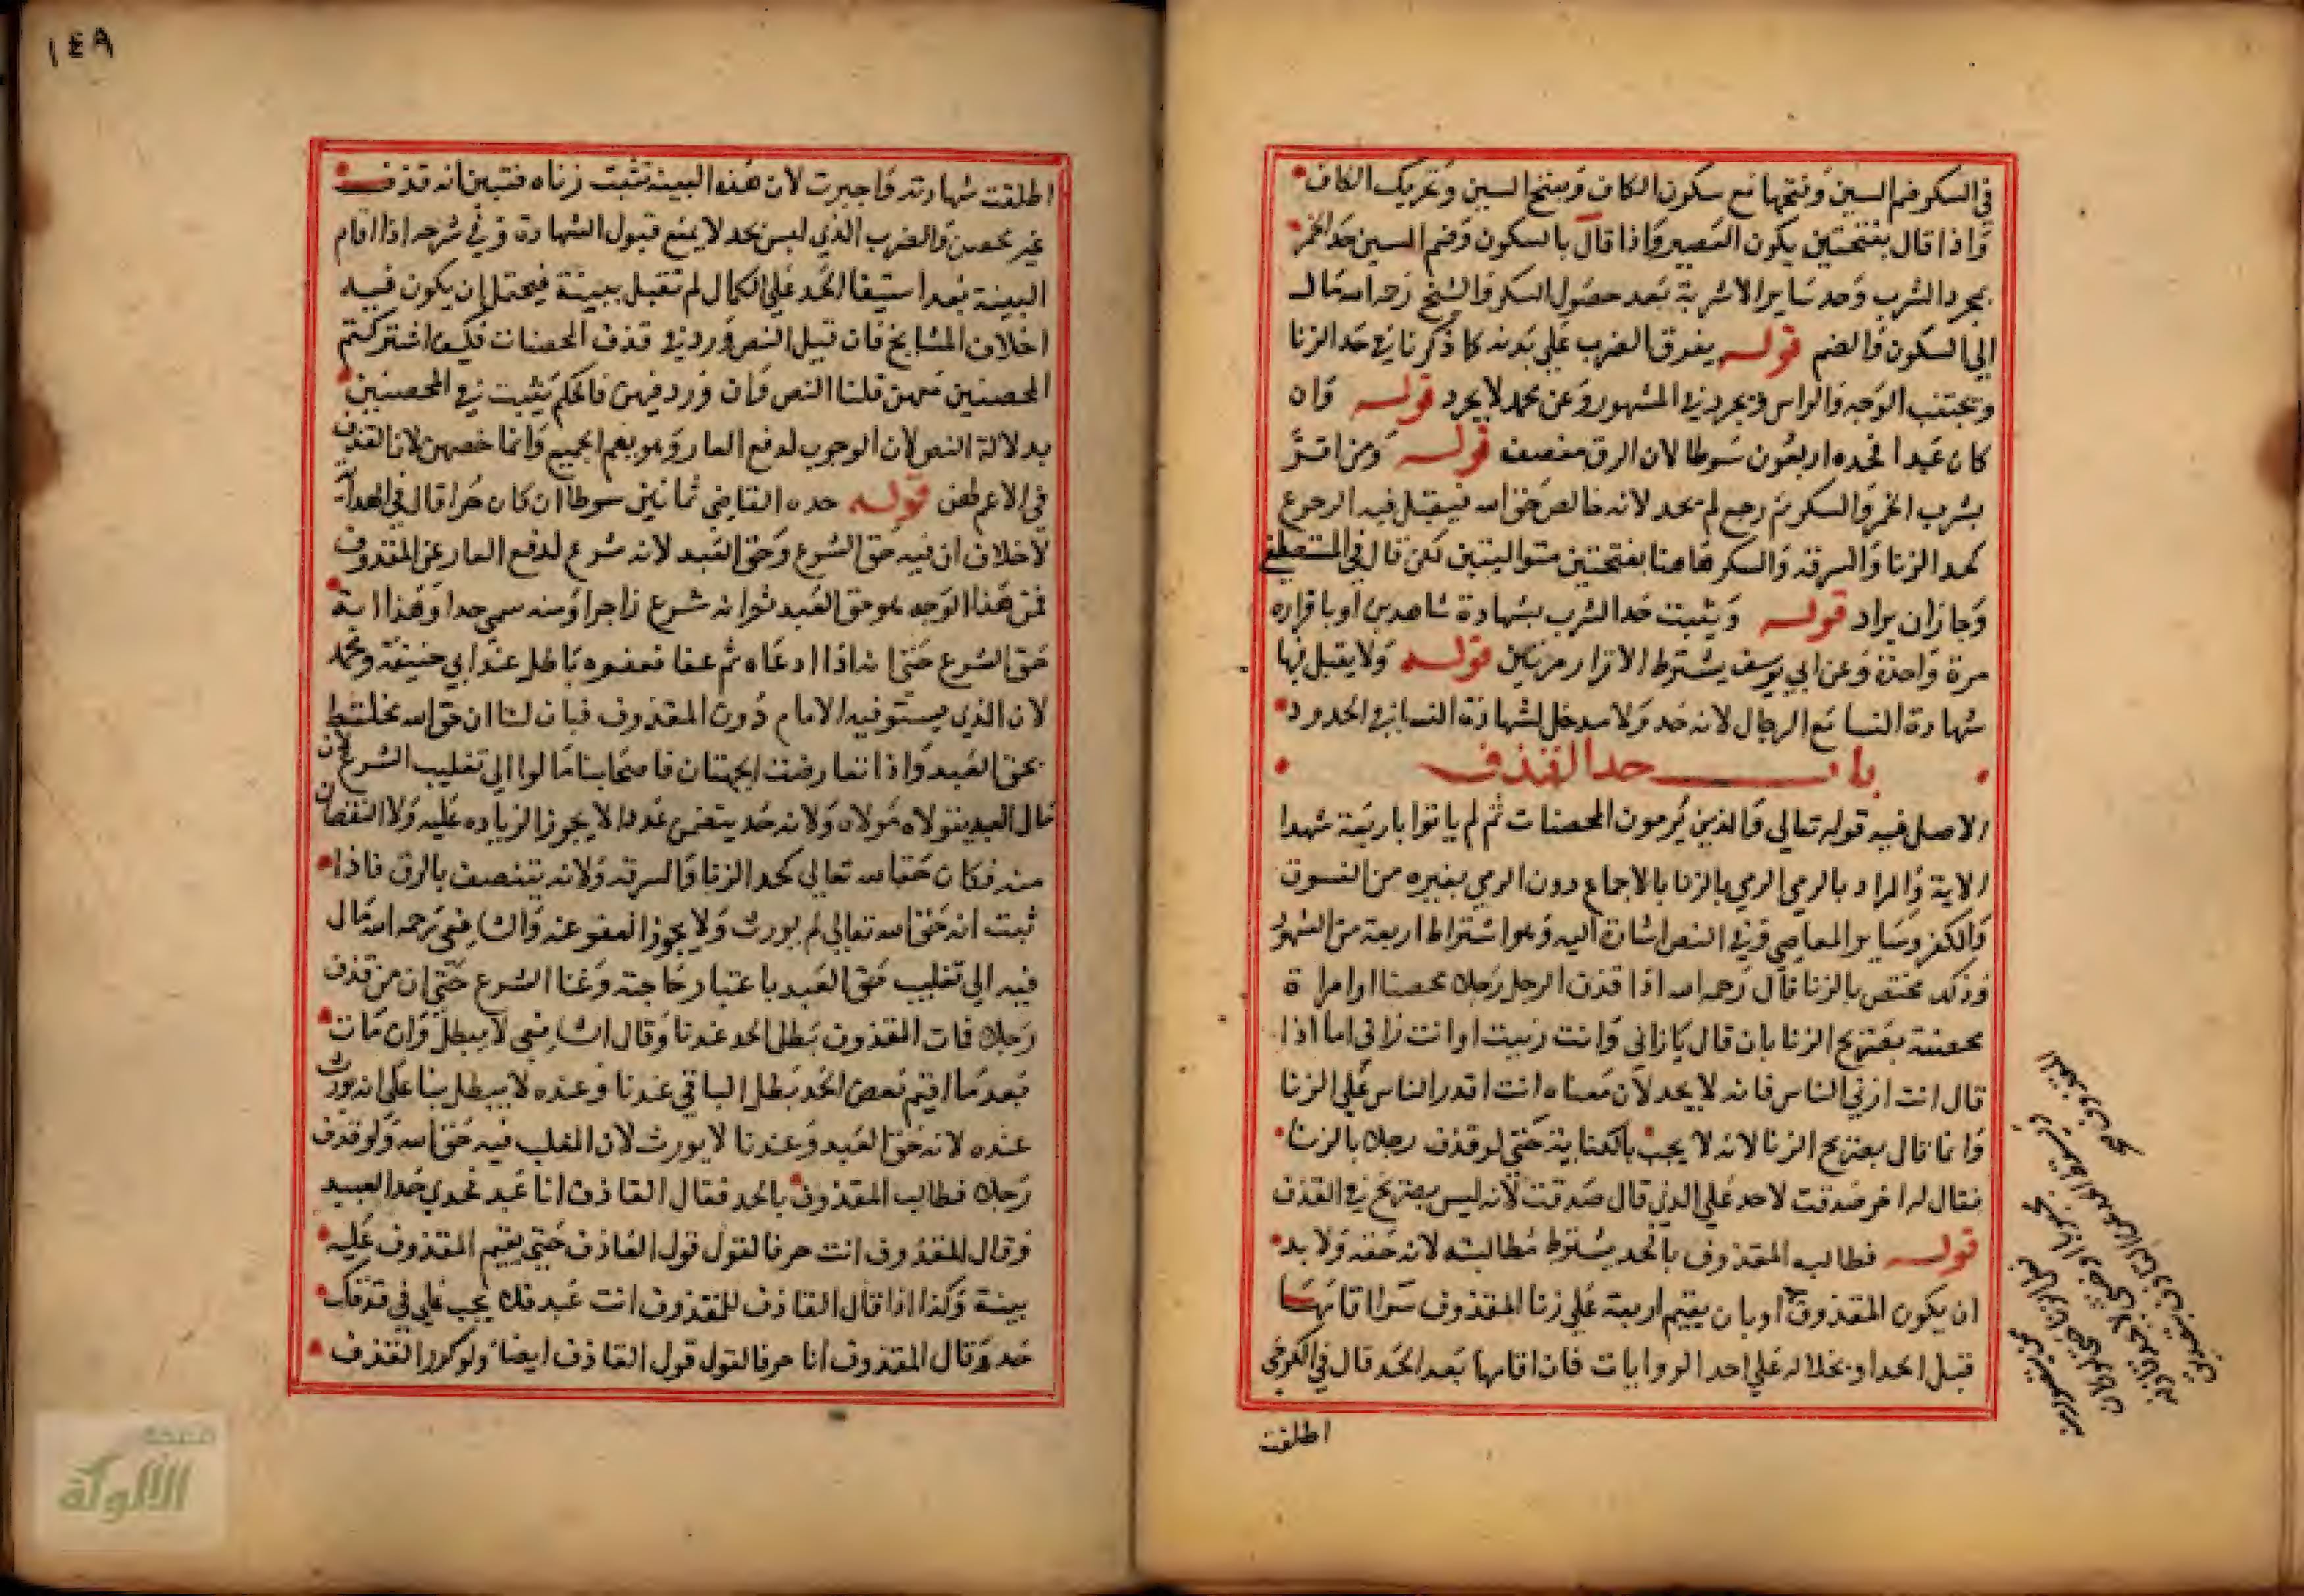 في السكر ضم السين وفتحها مع سكون الكاف وبفتح السين وتحريك الكاف
واذا قال بفتحتين يكون العصير واذا قال بالسكون وضم السين حد الخمر
بمجرد الشرب وحد ساير الاشربة بعد حصول السكر والشيخ رحمه الله مال
الي السكون والضم قوله يفرق الضرب علي بدنه كما ذكرنا في حد الزنا
ويجتنب الوجه والراس ويجرد في المشهور وعن محمد لا يجرد قوله وان
كان عبدا فحده اربعون سوطا لان الرق منصف قوله ومن اقر
بشرب الخمر والسكر ثم رجع لم يحد لانه خالص حق الله فيقبل فيه الرجوع
كحد الزنا والسرقة والسكر هاهنا بفتحتين متواليتين لكن قال في المستصفي
وجاز ان يراد قوله ويثبت حد الشرب بشهادة شاهدين او باقراره
مرة واحدة وعن ابي يوسف يشترط الاقرار مرتين قوله ولا يقبل فيها
شهادة النسا مع الرجال لانه حد ولا مدخل لشهادة النسا في الحدود
باب حد القذف
الاصل فيه قوله تعالي والذين يرمون المحصنات ثم لم ياتوا باربعة شهدا
الاية والمراد بالرمي الرمي بالزنا بالاجماع دون الرمي بغيره من الفسوق
والكفر وساير المعاصي وفي النص اشارة اليه وهو اشتراط اربعة من الشهود
وذلك مختص بالزنا قال رحمه الله اذا قذف الرجل رجلا محصنا او امراة
محصنة بصريح الزنا بان قال يا زاني وانت زنيت او انت زاني اما اذا
قال انت ازني الناس فانه لا يحد لان معناه انت اقدر الناس علي الزنا
وانما قال بصريح الزنا لانه لا يجب بالكناية حتي لو قذف رجلا بالزنا
فقال له اخر صدقت لا حد علي الذي قال صدقت لانه ليس بصريح في القذف
قوله فطالب المقذوف بالحد يشترط مطالبته لانه حقه ولا بد
ان يكون المقذوف او بان يقيم اربعة علي زنا المقذوف سوا اقامها
قبل الحد او بخلاله علي احد الروايات فان اقامها بعد الحد قال في الكرخي
اطلقت
١٤٩
اطلقت شهادته واجيزت لان هذه البينة تثبت زناه فتبين انه قذف
غير محصن والضرب الذي ليس بحد لا يمنع قبول الشهادة وفي شرحه اذا اقام
البينة بعد استيفا الحد علي الكمال لم تقبل ببينة فيحتمل ان يكون فيه
اختلاف المشايخ فان قيل النص ورد في قذف المحصنات فكيف اشتركتم
المحصنين معهن قلنا النص وان ورد فيهن فالحكم يثبت في المحصنين
بدلالة النص لان الوجوب لدفع العار وهو يعم الجميع وانما خصهن لان القذف
في الاعم لهن قوله حده القاضي ثمانين سوطا ان كان حرا قال في الهداية
لا خلاف ان فيه حق الشرع وحق العبد لانه شرع لدفع العار عن المقذوف
فمن هذا الوجه هو حق العبد ثم انه شرع زاجرا ومنه سمي حدا وهذا اية
حق الشرع حتي انه اذا ادعاه ثم عفا فعفوه باطل عند ابي حنيفة ومحمد
لان الذي يستوفيه الامام دون المقذوف فبان لنا ان حق الله مختلط
بحق العبد واذا تعارضت الجهتان فاصحابنا مالوا الي تغليب الشرع لان
مال العبد يتولاه مولاه ولانه حد يتضمن عددا لا يجوز الزيادة عليه ولا النقصان
منه فكان حقا لله تعالي كحد الزنا والسرقة ولانه يتنصف بالرق فاذا
ثبت انه حق الله تعالي لم يورث ولا يجوز العفو عنه والشافعي رحمه الله مال
فيه الي تغليب حق العبد باعتبار حاجته وغنا الشرع حتي ان من قذف
رجلا فمات المقذوف بطل الحد عندنا وقال الشافعي لا يبطل وان مات
بعد ما اقيم بعض الحد بطل الباقي عندنا وعنده لا يبطل بنا علي انه يورث
عنده لانه حق العبد وعندنا لا يورث لان المغلب فيه حق الله ولو قذف
رجلا فطالب المقذوف بالحد فقال القاذف انا عبد فحدي حد العبيد
وقال المقذوف انت حر فالقول قول القاذف حتي يقيم المقذوف عليه
بينة وكذا اذا قال القاذف للمقذوف انت عبد فلا يجب علي في قذفك
حد وقال المقذوف انا حر فالقول قول القاذف ايضا ولو كرر القذف
الألوكة